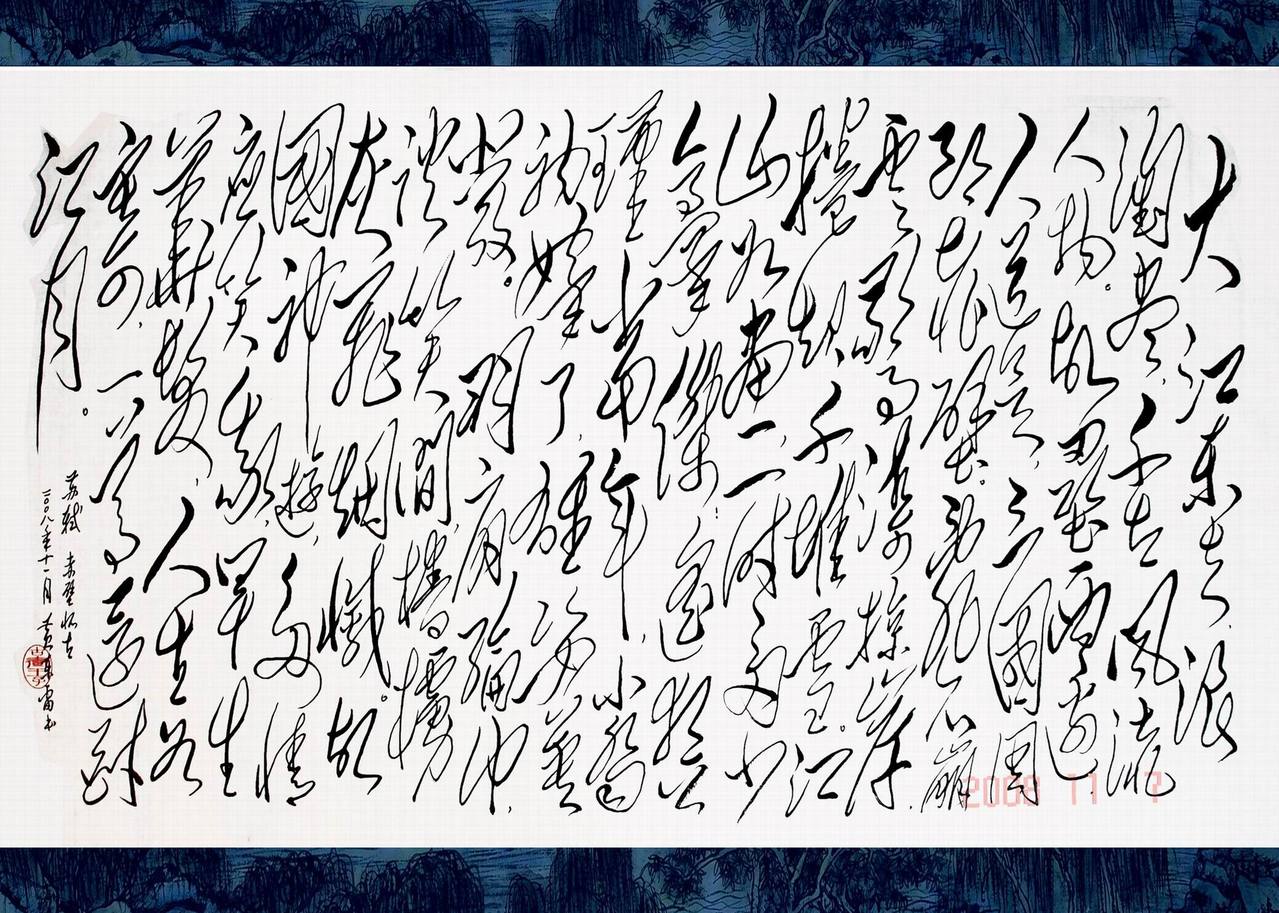 大江东去,浪
淘尽,千古风流
人物。故垒西边
人道是,三國周
郎赤壁。乱石崩
云,驚涛掠岸,
捲起千堆雪。江
山如畫,一时多少
豪傑。遥想公
瑾当年,小喬
初嫁了,雄姿英
發。羽扇綸巾,
谈笑間,樯櫓
灰飛烟滅。故
國神遊,多情
應笑我,早生
華髮。人生如
一尊还酹
江月。
苏轼 赤壁怀古
二〇〇八年十一月
2008 11 7